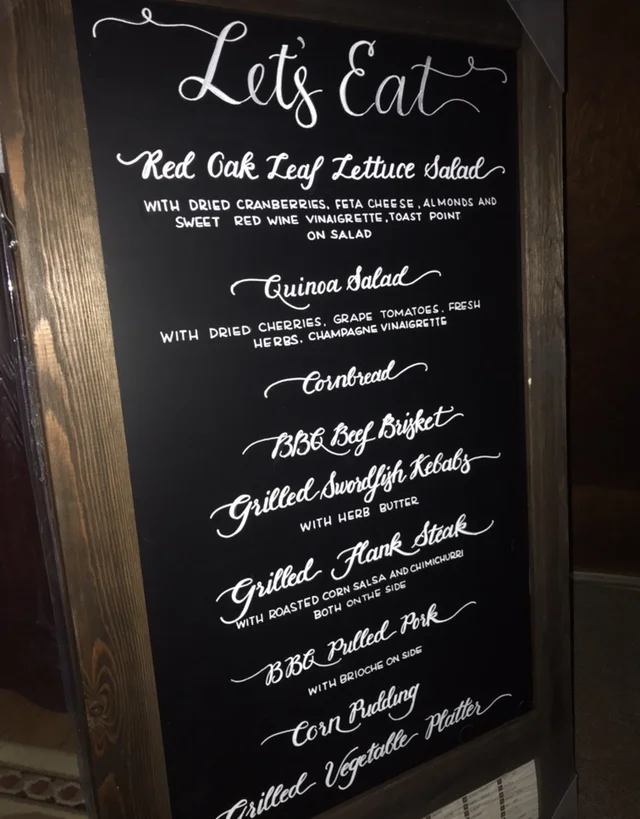 Let's Eat
Red Oak Leaf Lettuce Salad
WITH DRIED CRANBERRIES, FETA CHEESE, ALMONDS AND
SWEET RED WINE VINAIGRETTE, TOAST POINT
ON SALAD
Quinoa Salad
WITH DRIED CHERRIES, GRAPE TOMATOES, FRESH
HERBS, CHAMPAGNE VINAIGRETTE
Cornbread
BBQ Beef Brisket
Grilled Swordfish Kebabs
WITH HERB BUTTER
Grilled Flank Steak
WITH ROASTED CORN SALSA AND CHIMICHURRI
BOTH ON THE SIDE
BBQ Pulled Pork
WITH BRIOCHE ON SIDE
Corn Pudding
Grilled Vegetable Platter